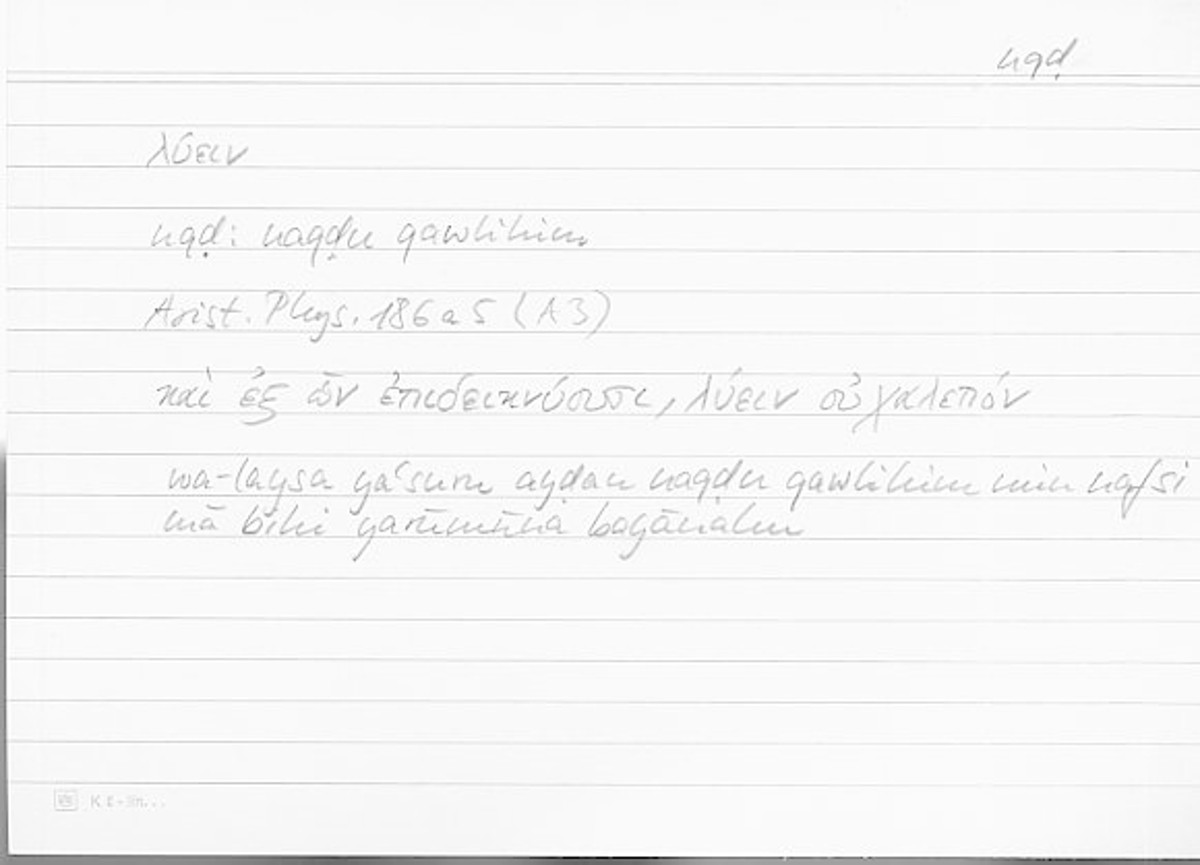 nqḍ
λύειν
nqḍ: naqḍu qawlihim
Arist. Phys. 186 a 5 (A 3)
καὶ ἐξ ὧν ἐπιδεικνύουσι, λύειν οὐ χαλεπόν
wa-laysa yaʿsuru ayḍan naqḍu qawlihim min nafsi
mā bihi yarūmūna bayānahu